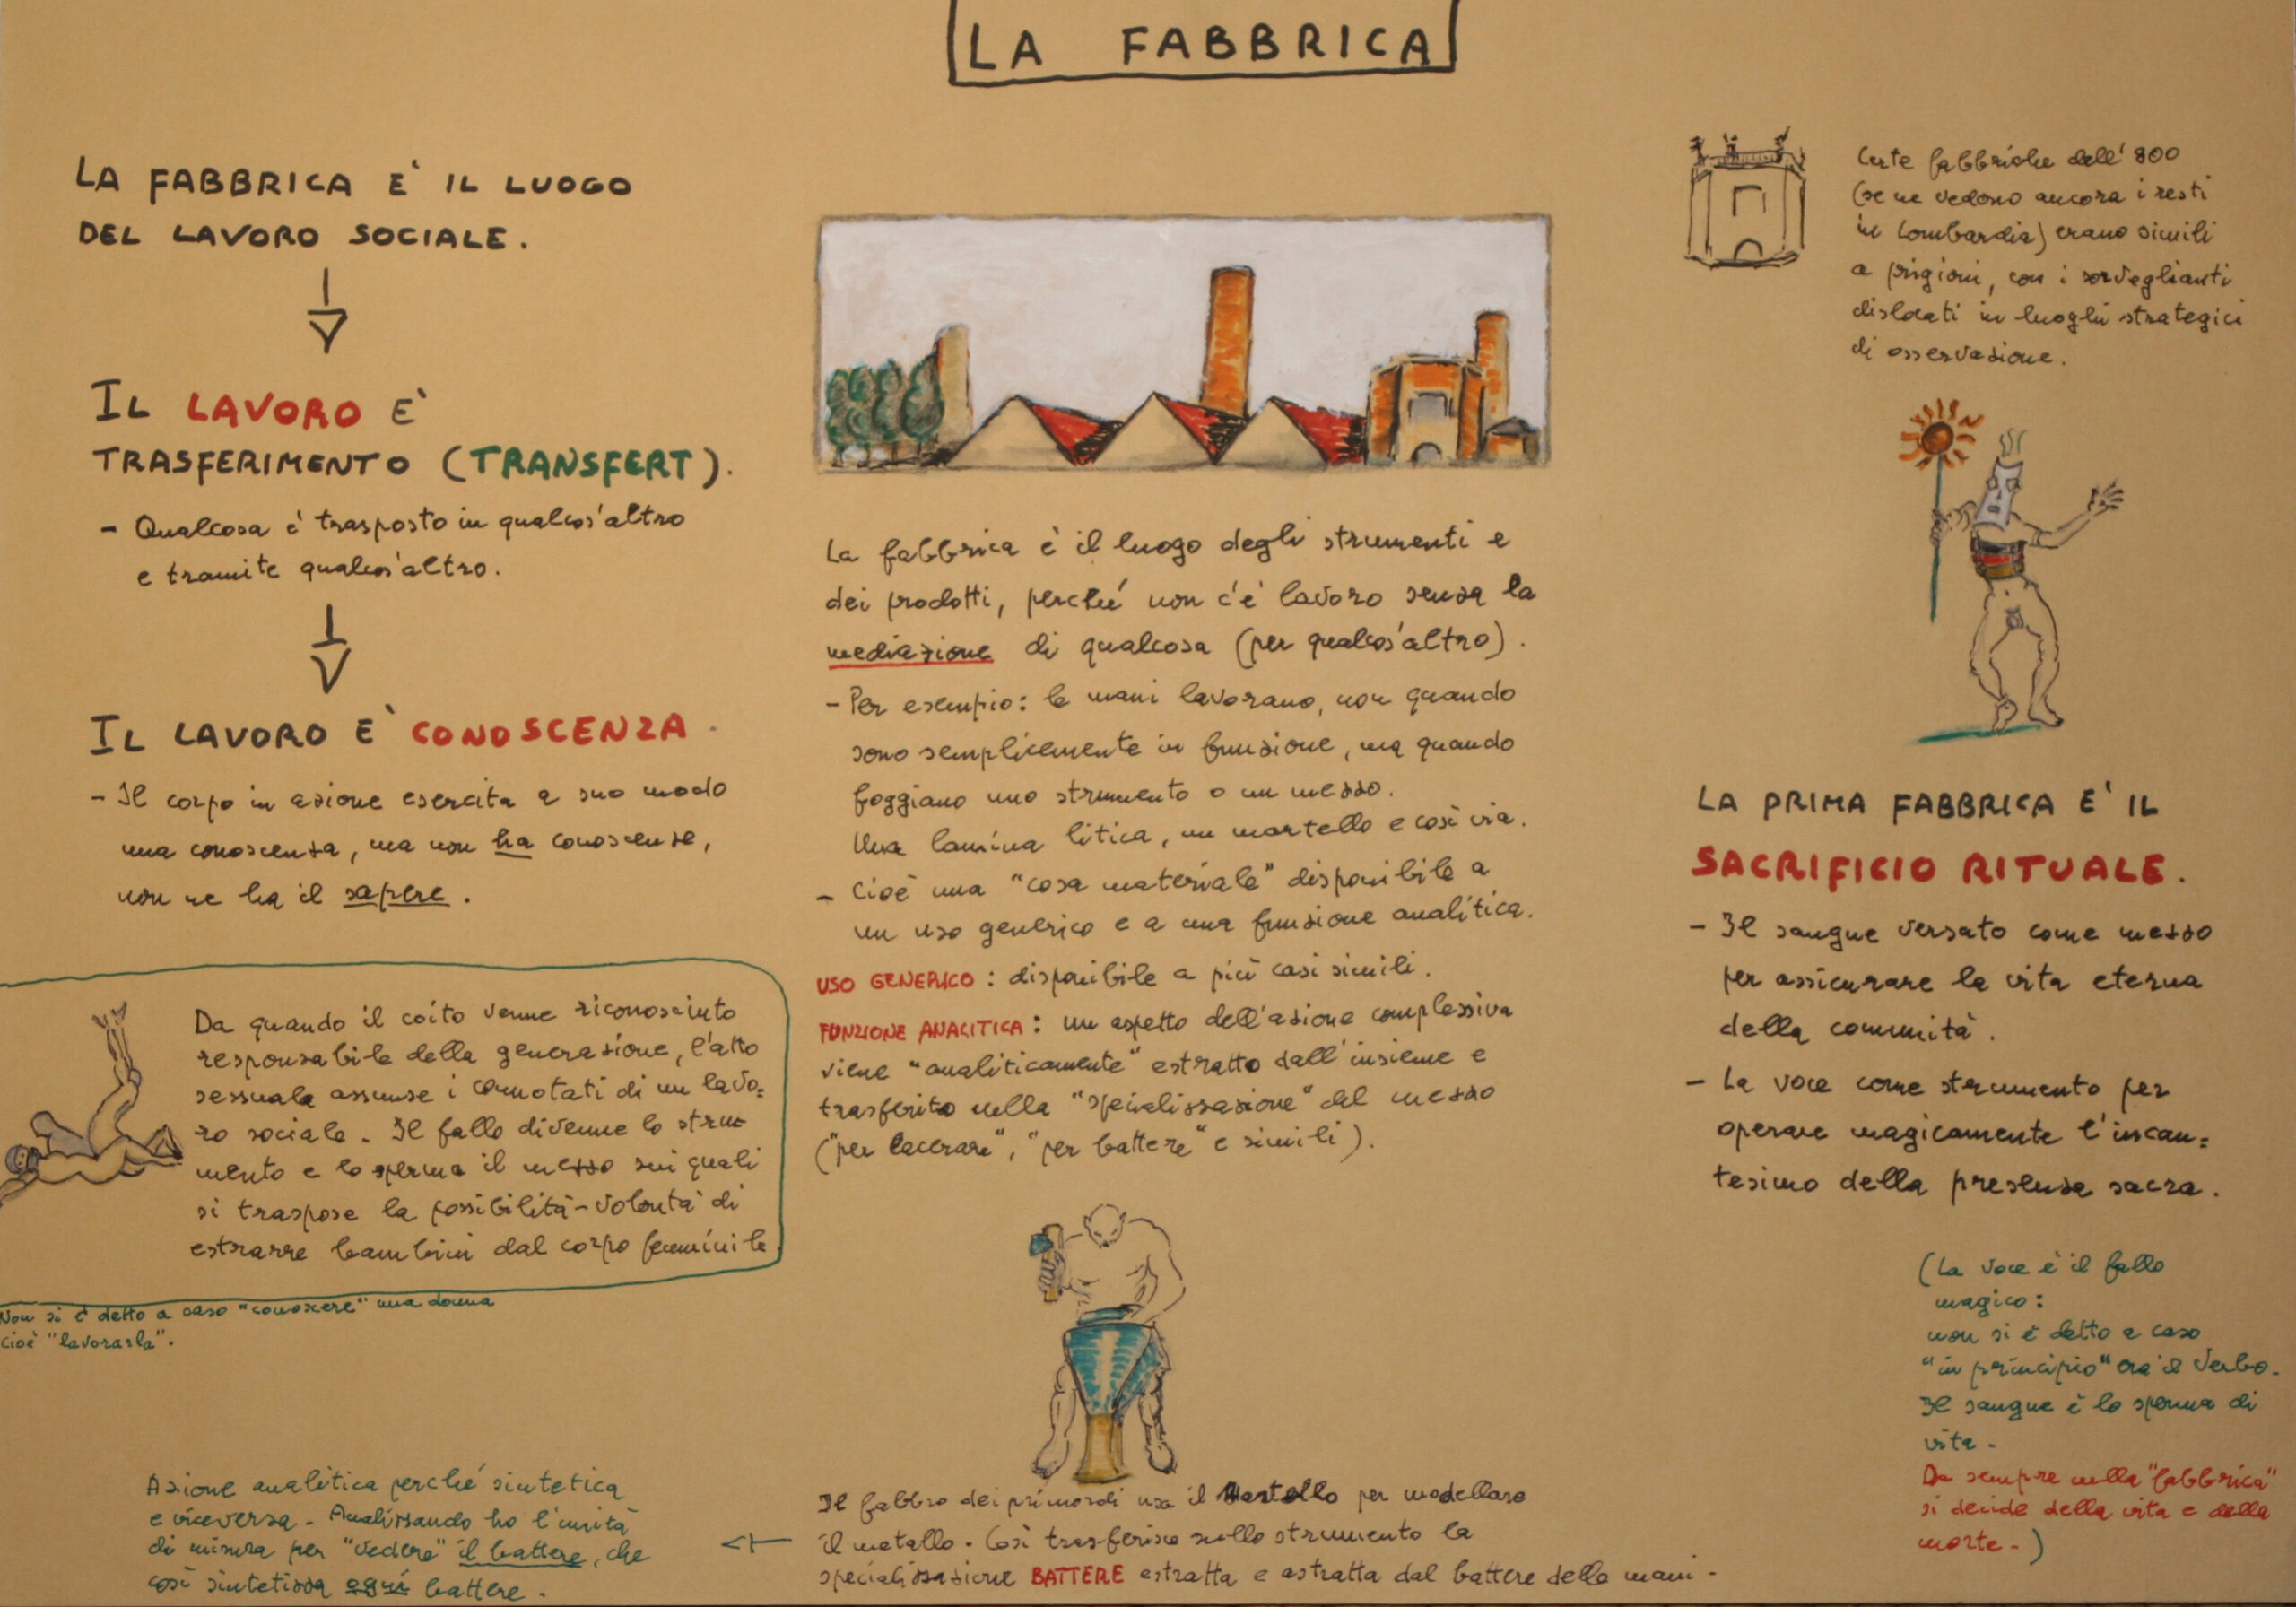 LA FABBRICA
LA FABBRICA E' IL LUOGO
DEL LAVORO SOCIALE.
IL LAVORO E'
TRASFERIMENTO (TRANSFERT).
- Qualcosa è trasposto in qualcos'altro
e tramite qualcos'altro.
IL LAVORO E' CONOSCENZA.
- Il corpo in azione esercita a suo modo
una conoscenza, ma non ha conoscenze,
non ne ha il sapere.
Da quando il coito venne riconosciuto
responsabile della generazione, l'atto
sessuale assunse i connotati di un lavo=
ro sociale. Il fallo divenne lo stru-
mento e lo sperma il mezzo sui quali
si traspose la possibilità-volontà di
estrarre bambini dal corpo femminile
Non si è detto a caso "conoscere" una donna
cioè "lavorarla".
Azione analitica perché sintetica
e viceversa. Analizzando ho l'unità
di misura per "vedere" il battere, che
così sintetizza ogni battere.
La fabbrica è il luogo degli strumenti e
dei prodotti, perché non c'è lavoro senza la
mediazione di qualcosa (per qualcos'altro).
- Per esempio: le mani lavorano, non quando
sono semplicemente in funzione, ma quando
foggiano uno strumento o un mezzo.
Una lamina litica, un martello e così via.
- Cioè una "cosa materiale" disponibile a
un uso generico e a una funzione analitica.
USO GENERICO: disponibile a più casi simili.
FUNZIONE ANALITICA: un aspetto dell'azione complessiva
viene "analiticamente" estratto dall'insieme e
trasferito nella "specializzazione" del mezzo
("per lacerare", "per battere" e simili).
Il fabbro dei primordi usa il Martello per modellare
il metallo. Così trasferisce sullo strumento la
specializzazione BATTERE estratta e astratta dal battere delle mani.
Certe fabbriche dell'800
(se ne vedono ancora i resti
in Lombardia) erano simili
a prigioni, con i sorveglianti
dislocati in luoghi strategici
di osservazione.
LA PRIMA FABBRICA E' IL
SACRIFICIO RITUALE.
- Il sangue versato come mezzo
per assicurare la vita eterna
della comunità.
- La voce come strumento per
operare magicamente l'incan=
tesimo della presenza sacra.
(La voce è il fallo
magico:
non si è detto a caso
"in principio" era il Verbo.
Il sangue è lo sperma di
vita.
Da sempre nella "fabbrica"
si decide della vita e della
morte.)